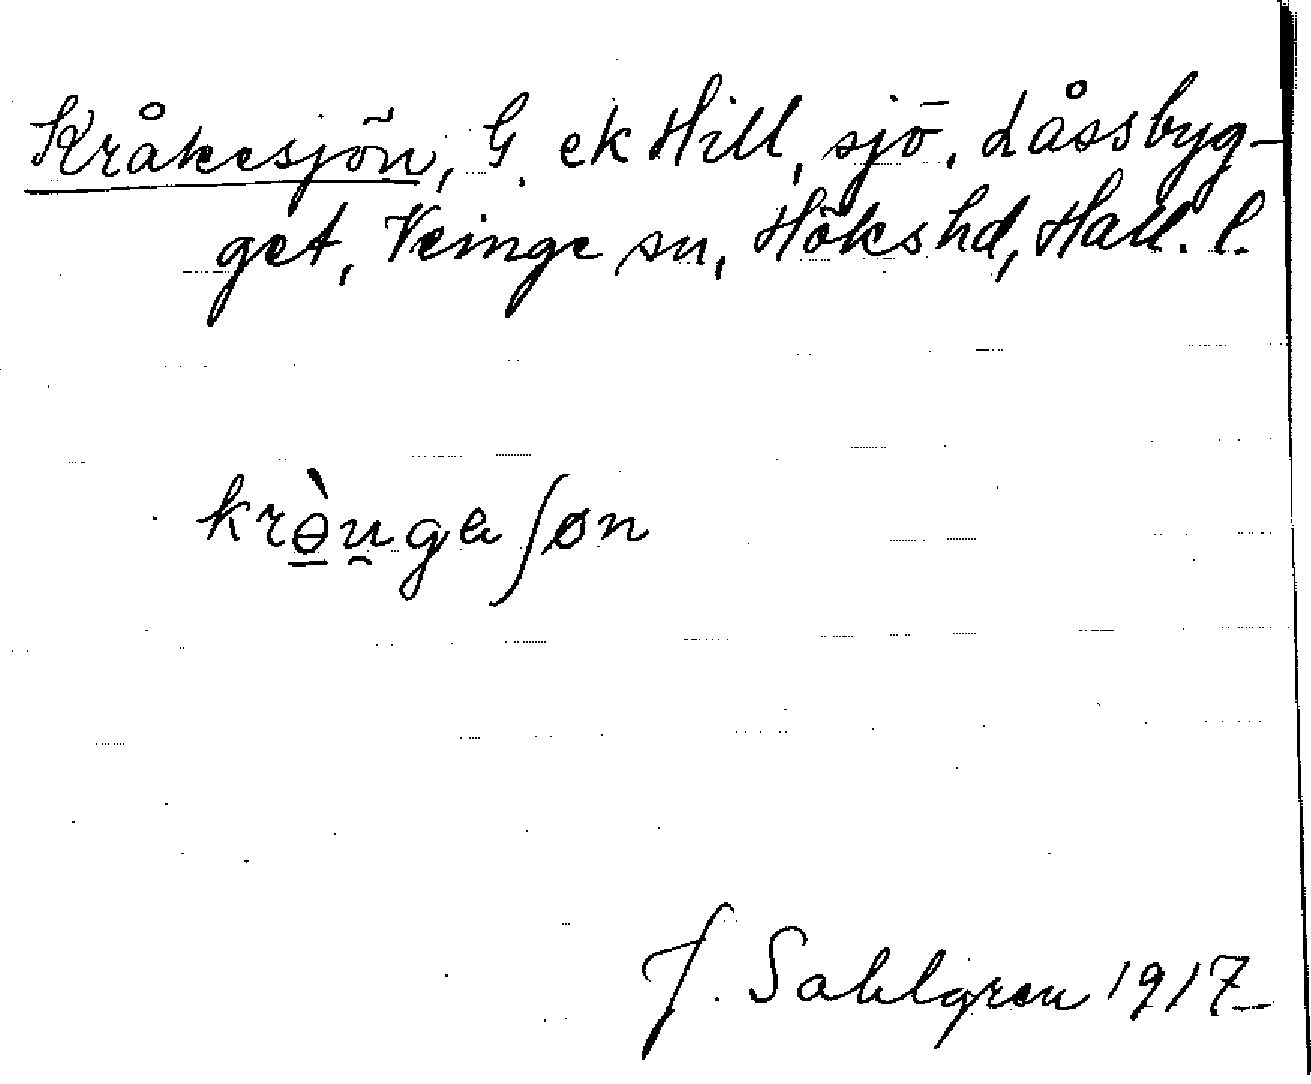 Kråkesjön, G. ekHill, sjö, Låssbyg-
get, Veinge sn, Höks hd, Hall. l.
krɵ̠̀u̯gaʃøn
J. Sahlgren 1917